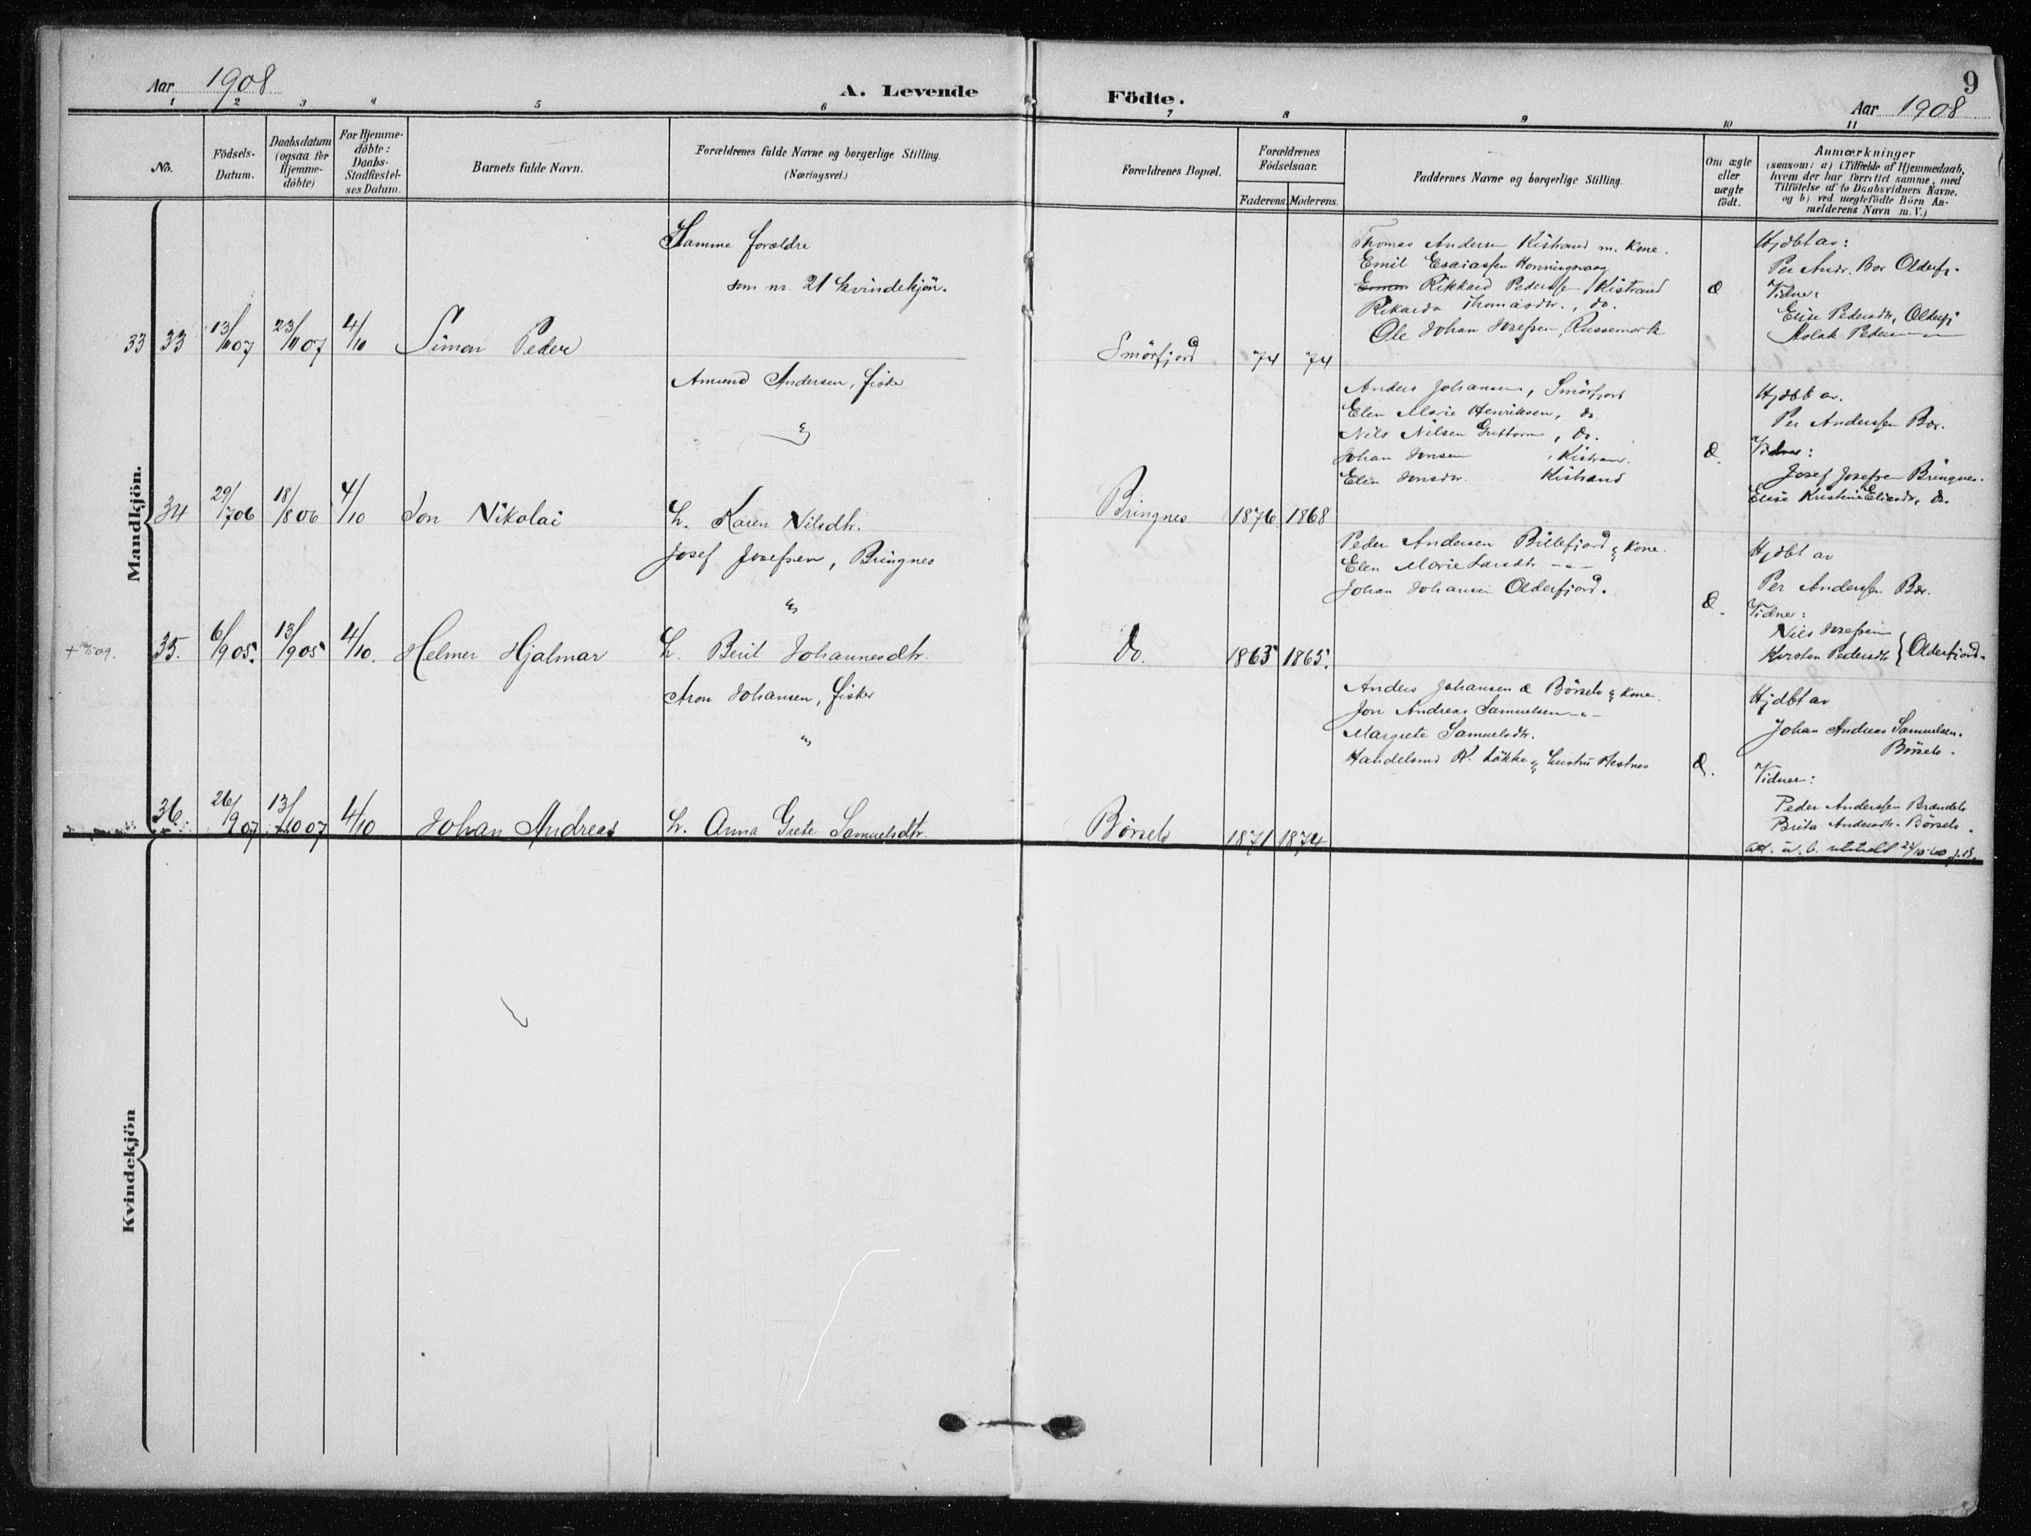 Aar 1908
A. Levende
Födte.
9
Aar 1908
1 2 3 4 5 6 7 8 9 10 11
No.
Födsels-
Datum.
Daabsdatum
(ogsaa for
Hjemme-
döbte)
For Hjemme-
döbte:
Daabs-
Stadfæstel-
ses Datum.
Barnets fulde Navn.
Forældrenes fulde Navne og borgerlige Stilling
(Næringsvei.)
Forældrenes Bopæl.
Forældrenes
Födselsaar.
Faderens. Moderens.
Faddernes Navne og borgerlige Stilling.
Om ægte
eller
uægte
födt.
Anmærkninger
(saasom: a) i Tilfælde af Hjemmedaab,
hvem der har forrettet samme, med
Tilföielse af to Daabsvidners Navne.
og b) ved uægtefödte Börn An-
melderens Navn m. V.)
Mandkjön.
33 33 13/11 07 23/11 07 4/10 Simon Peder
Samme forældre
som nr. 21 kvindekjön.
Smörfjord 74 74
Thomas Andersen Kistrand m. kone.
Emil Esaiassen Honningsvaag
Rikkard Pederssen Kistrand
Rikarda Thomasdtr., do.
Ole Johan Josefsen, Russemark
Æ
Hjdbt av:
Per Andr. Bær Olderfj.
Vidner:
Elise Pedersdtr, Olderfj
Aslak Peders
34 29/7 06 18/8 06 4/10 Jon Nikolai
Amund Andersen, fisker
og
h. Karen Nilsdtr.
Bringnes 1876 1868
Anders Johansen, Smörfjord
Elen Marie Henriksen, do.
Nils Nilsen Guttorm, do.
Johan Jonsen, Kistran.
Elen Jonsdtr. Kistrand
Æ.
Hjdbt av.
Per Anderssen Bær.
Vidner:
Josef Josefsen Bringnes.
Elise Kristine Eliasdtr, do.
+ 09.
35. 6/9 05. 13/9 05 4/10. Helmer Hjalmar
Josef Josefsen, Bringnes
og
h. Berit Johannesdtr.
do. 1863 1865.
Peder Andersen Billefjord og kone.
Elen Marie Larsdtr - -
Johan Johansen Olderfjord.
Æ.
Hjdbt av
Per Anderssen Bær.
Vidner:
Nils Josefsen
Kirsten Pedersdtr } Olderfjord.
36. 26/9 07 13/10 07 4/10 Johan Andreas
Aron Johansen, fisker
og
h. Anna Grete Samuelsdtr.
Börselv 1871 1874
Anders Johansen Börselv og kone.
Jon Andreas Samuelsen - -
Margrete Samuelsdtr.
Handelsmd K. Lökke og hustru Hestnes
Æ.
Hjdbt av
Johan Andreas Samuelsen.
Börselv.
Vidner:
Peder Anderssen Brændelv
Brita Andersdtr. Börselv.
att. u. b. utstedt
Kvindekjön